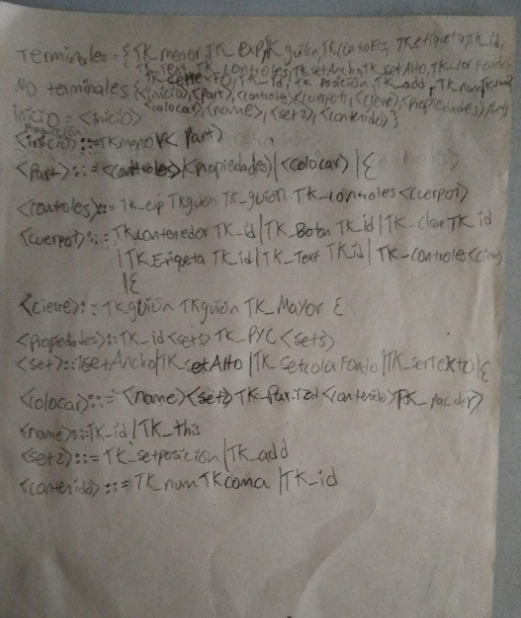 Terminales = {TK_menor, TK_exp, TK_guión, TK_controles, TK_etiqueta, TK_id,
TK_Text, TK_controles, TK_setAncho, TK_setAlto, TK_color Fondo,
TK_id, TK_posición, TK_add, TK_num
NO terminales {<inicio>, <Part>, <controles>, <cuerpot>, <cierre>, <propiedades>,
<colocar>, <name>, <set2>, <contenido>}
inicio = <inicio>
<inicio>::=TK_menor< Part>
<Part>::=<controles>|<propiedades>|<colocar>|ε
<controles>::= TK_exp TKguion TK_guión TK_controles<cuerpot>
<cuerpot>::=TKcontenedor TK_id|TK_Boton TK_id|TK_Clave TK_id
|TK_Etiqueta TK_id|TK_Text TK_id|TK_controles<cierre>
|ε
<cierre>:: TKguión TKguión TK_Mayor ε
<propiedades>::TK_id<sets>TK_PYC<sets>
<set>::TsetAncho|TK_setAlto|TK_setcolorFondo|TK_sertexto|ε
<colocar>::=<name><set2>TK_Par_izq<contenido>TK_parder>
<name>::TK_id/TK_this
<set2>::=TK_setposicion|TK_add
<contenido>::=TK_numTKcoma|TK_id